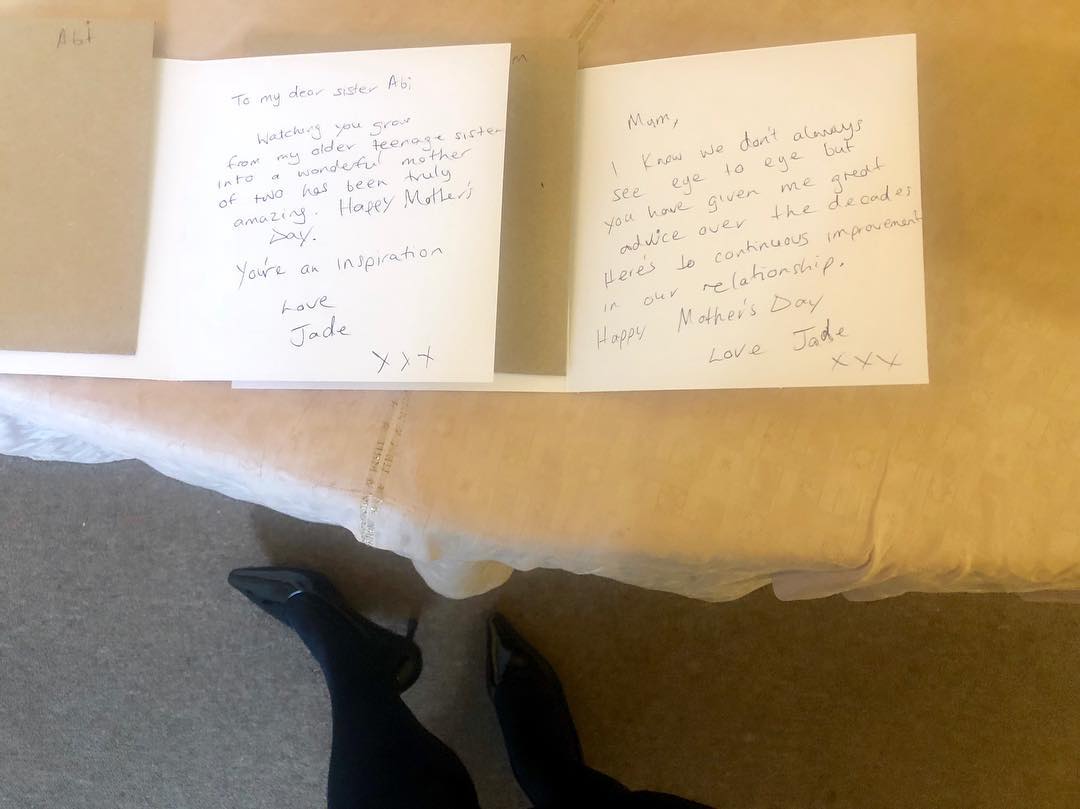 Abi
To my dear sister Abi
Watching you grow
from my older teenage sister
into a wonderful mother
of two has been truly
amazing. Happy Mother's
Day.
You're an inspiration
Love
Jade
x x x
m
Mum,
I know we don't always
see eye to eye but
you have given me great
advice over the decades
Here's to continuous improvement
in our relationship.
Happy Mother's Day
Love Jade
x x x